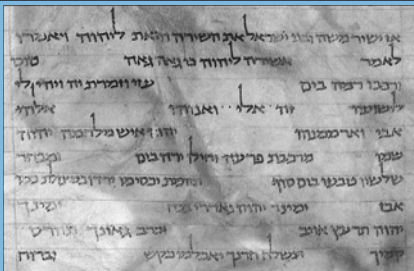 אז ישיר משה ובני ישראל את השירה הזאת ליהוה ויאמרו
לאמר אשירה ליהוה כי גאה גאה סוס
ורכבו רמה בים עזי וזמרת יה ויהי לי
לישועה זה אלי ואנוהו אלהי
אבי וארממנהו יהוה איש מלחמה יהוה
שמו מרכבת פרעה וחילו ירה בים ומבחר
שלשיו טבעו בים סוף תהומת יכסימו ירדו במצולת כמו
אבן ימינך יהוה נאדרי בכח ימינך
יהוה תרעץ אויב וברב גאונך תהרס
קמיך תשלח חרנך יאכלמו כקש וברוח